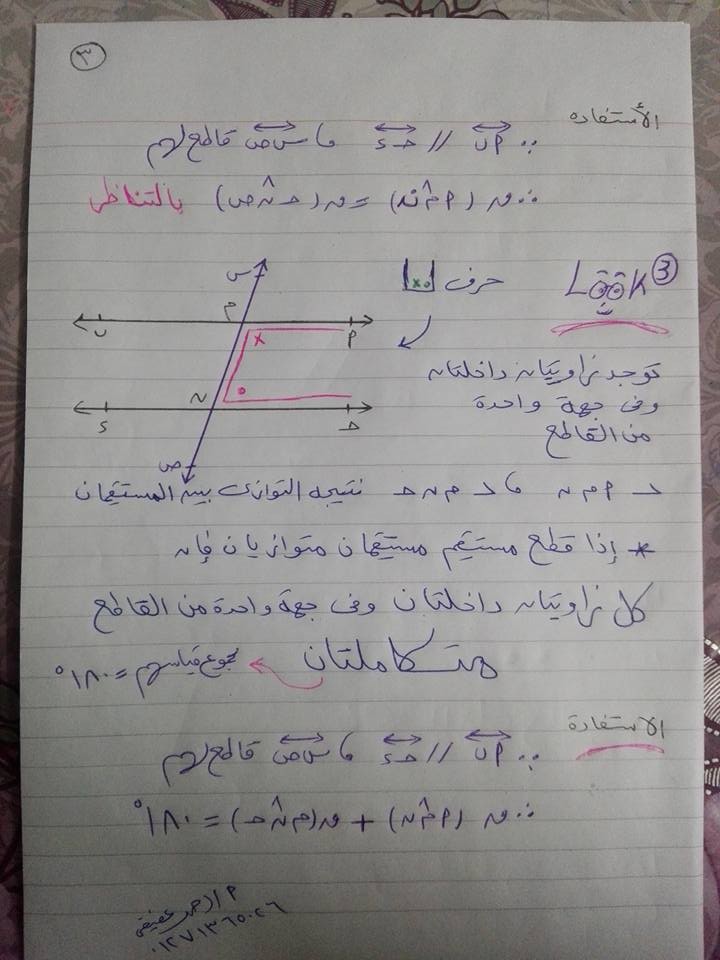 ٣
الأستفاده
∵ أب // حـء ، س ص قاطع لهم
∴ ق (أمن) = ق (حـ ن ص) بالتناظر
Look ③
حرف ⊔ x o
توجد زاويتان داخلتان
وفى جهة واحدة
من القاطع
س
م
ب
أ
x
o
ن
ء
حـ
ص
> أ م ن ، > م ن حـ نتيجه التوازى بين المستقيمان
* إذا قطع مستقيم مستقيمان متوازيان فإن
كل زاويتان داخلتان وفى جهة واحدة من القاطع
متكاملتان مجموع قياسهم = ١٨٠°
الاستفادة
∵ أب // حـء ، س ص قاطع لهم
∴ ق (أمن) + ق (م ن حـ) = ١٨٠°